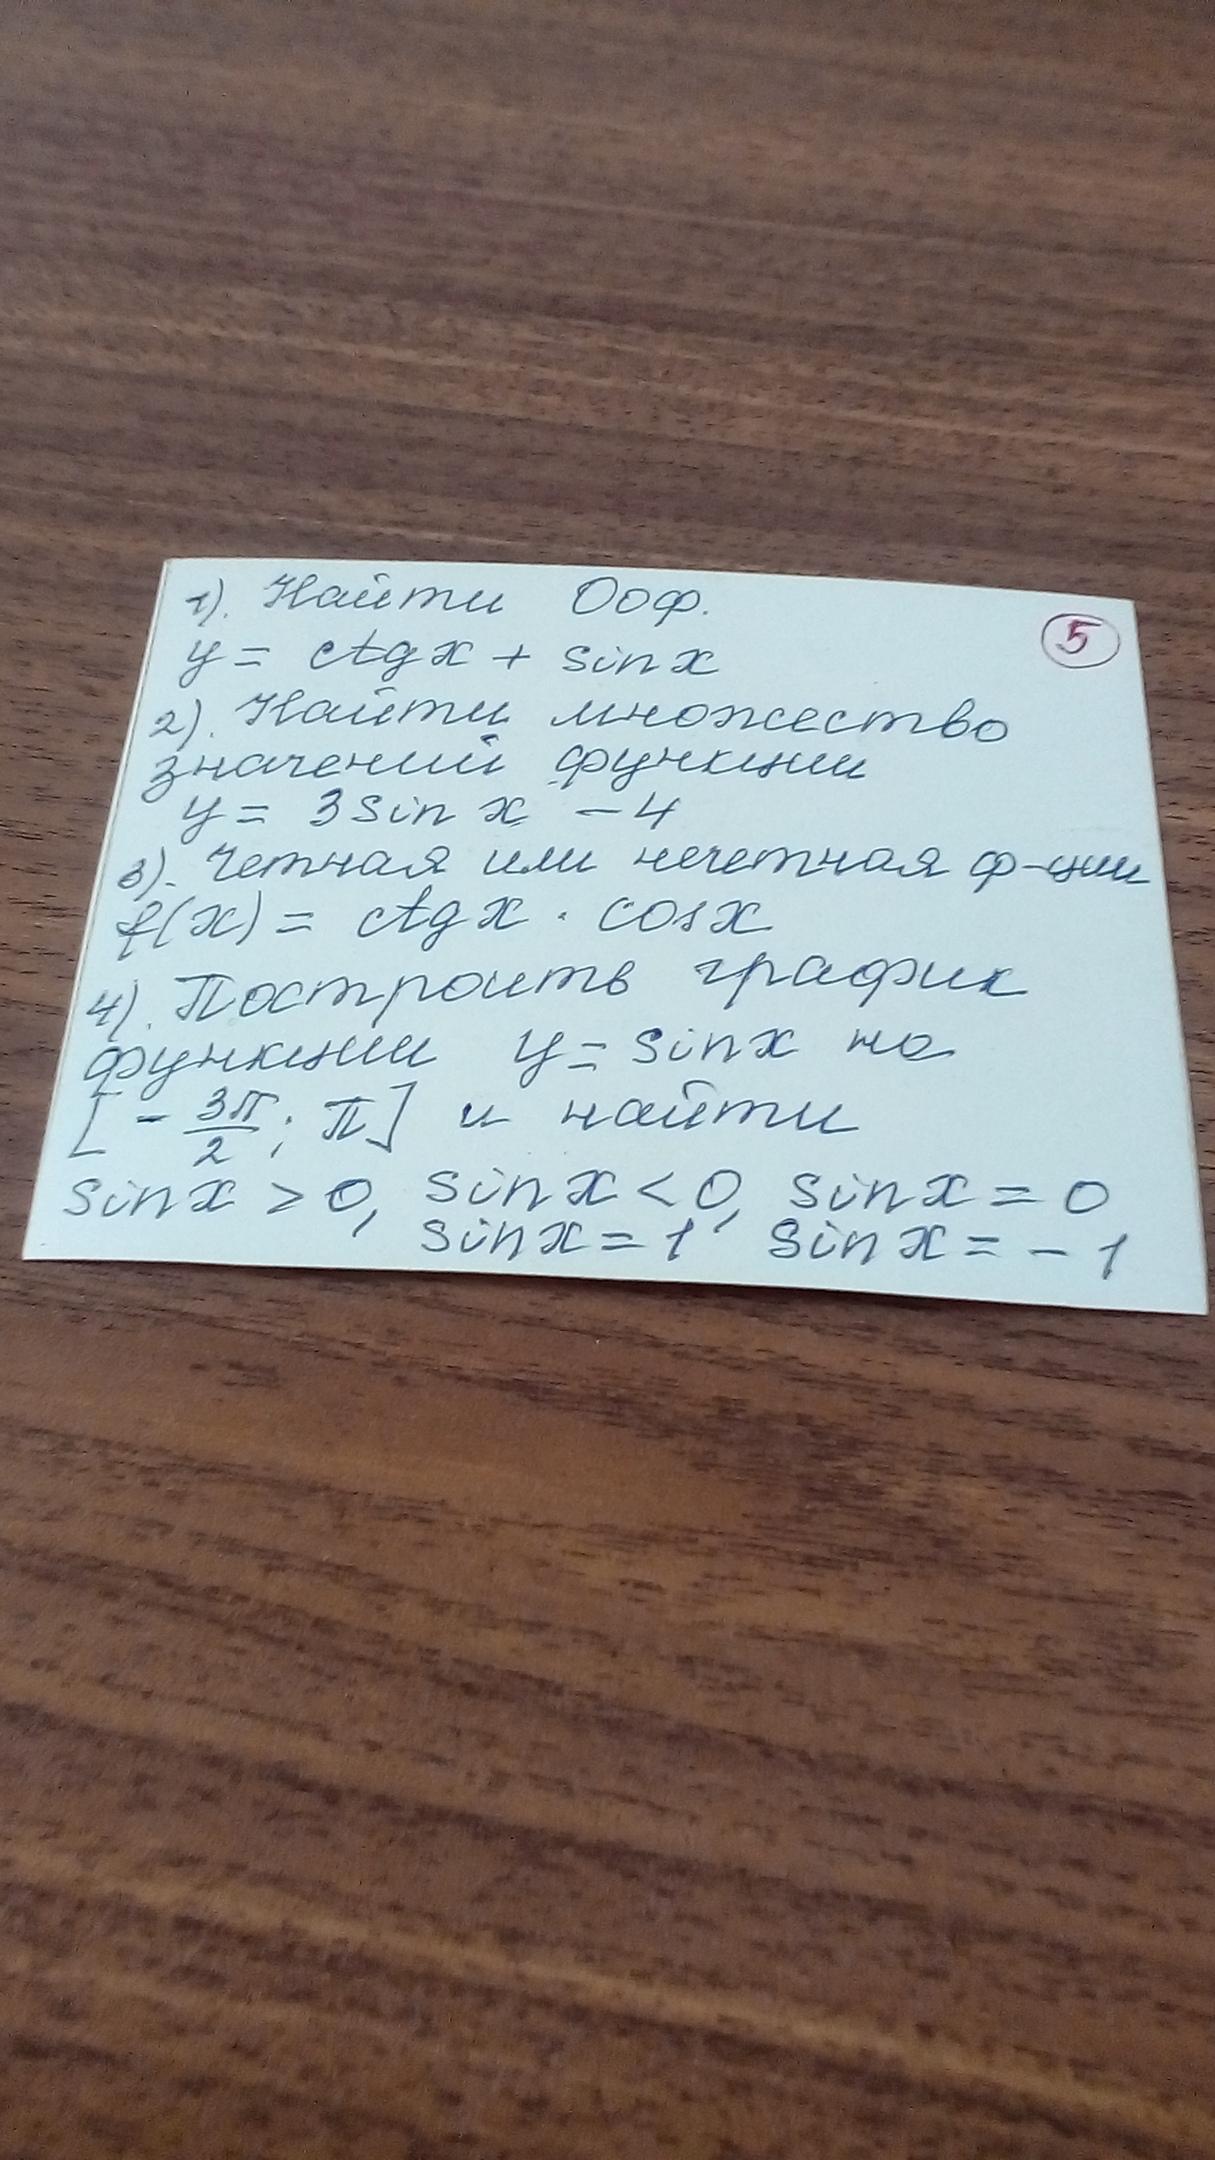 1). Найти Ооф.
5
y = ctgx + sinx
2). Найти множество
значений функции
y = 3sinx - 4
3). Четная или нечетная ф-ции
f(x) = ctgx · cosx
4). Построить график
функции y = sinx на
[-3π/2; π] и найти
sinx > 0, sinx < 0, sinx = 0
sinx = 1 sinx = -1